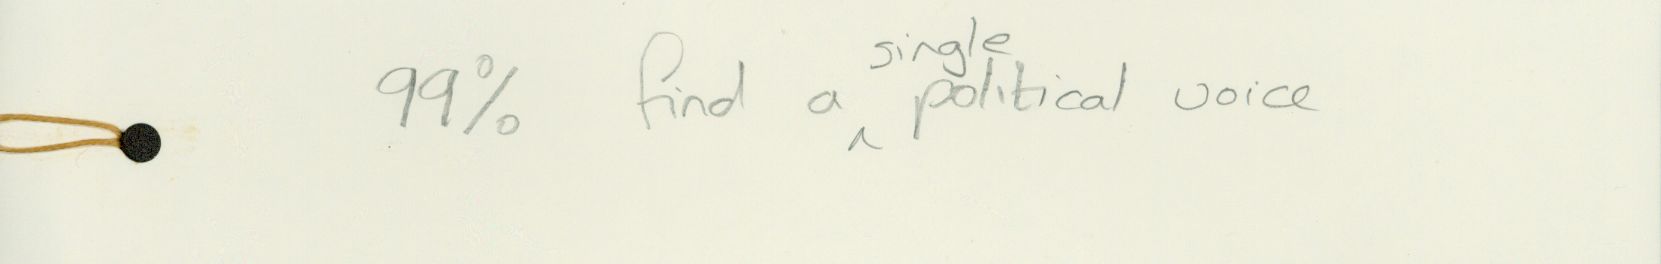 99% find a single political voice